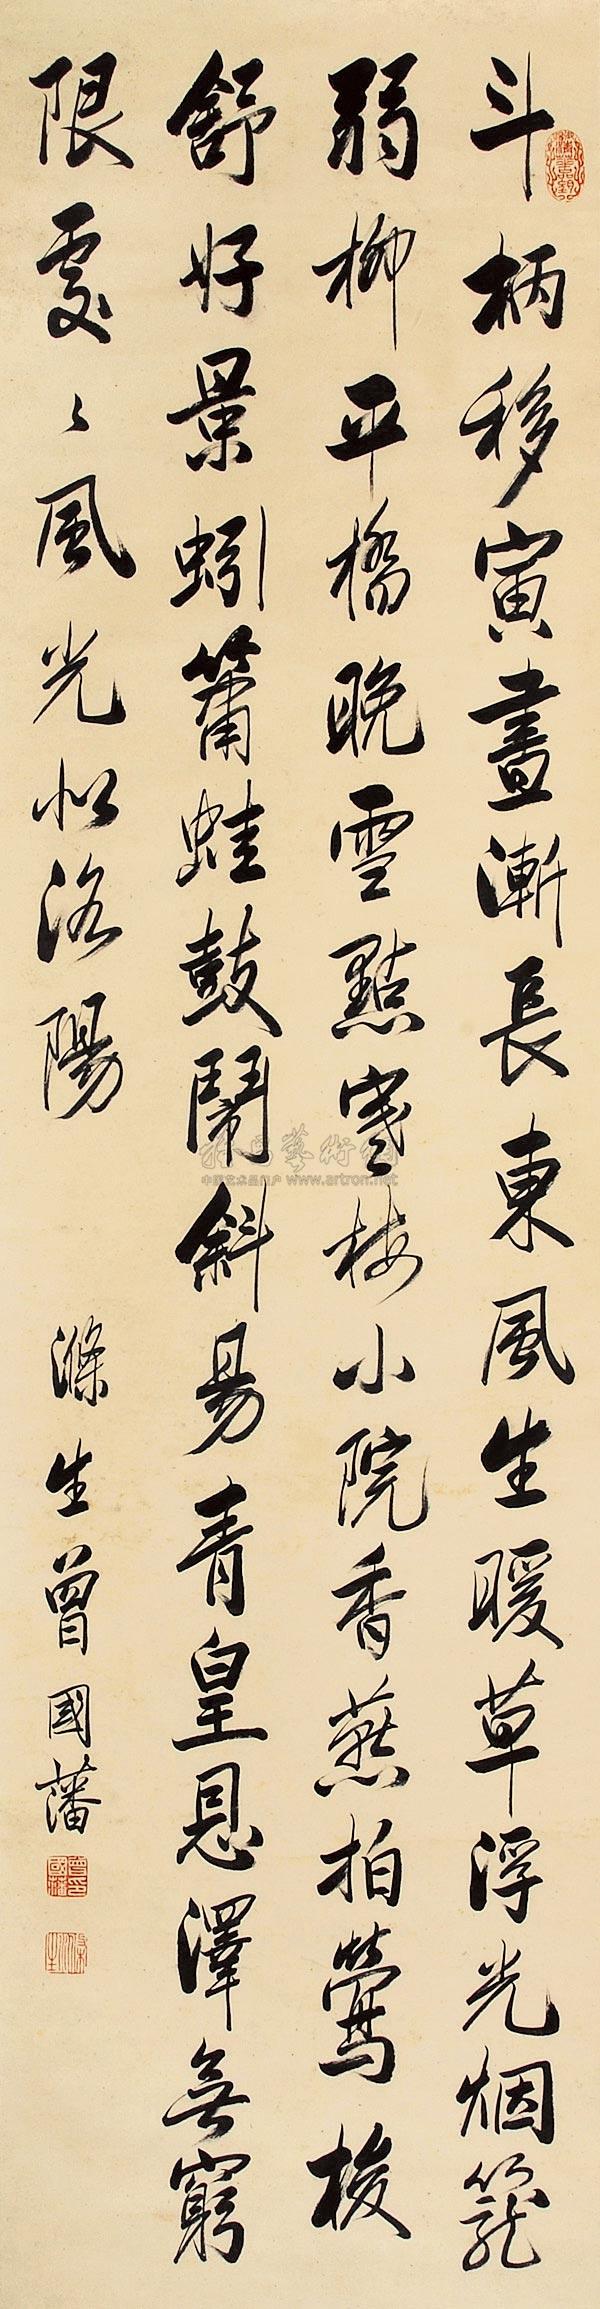 斗柄移寅晝漸長東風生暖草浮光烟籠
弱柳平橋晚雪點寒梅小院香燕拍鶯梭
舒好景蚓簫蛙鼓鬧斜昜青皇恩澤無窮
限處〻風光似洛陽
滌生曾國藩
中国艺术品门户 www.artron.net